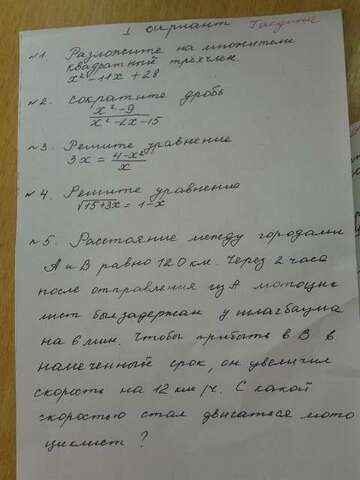 1 вариант
№1. Разложите на множители
квадратный трёхчлен
x² - 11x + 28
№2. Сократите дробь
x² - 9
x² - 2x - 15
№3. Решите уравнение
3x = 4 - x²
x
№4. Решите уравнение
√15+3x = 1 - x
№5. Расстояние между городами
А и В равно 120 км. Через 2 часа
после отправления из А мотоцик
лист был задержан у шлагбаума
на 6 мин. Чтобы прибыть в В в
намеченный срок, он увеличил
скорость на 12 км/ч. С какой
скоростью стал двигаться мото
циклист?